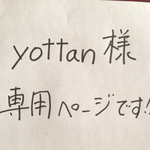 yottan様
専用ページです!!